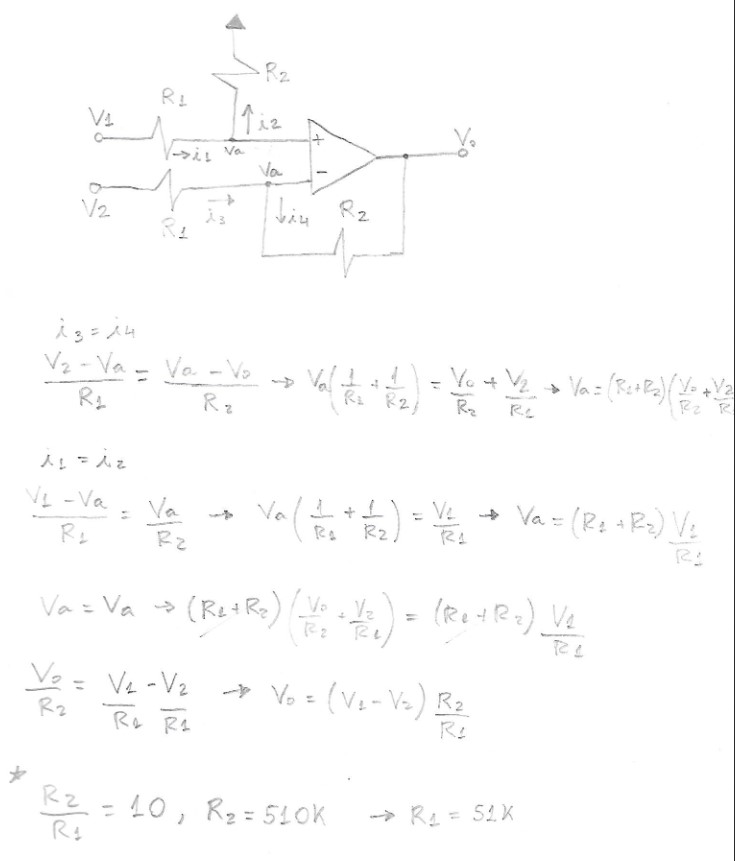 R2
R1
V1
i2
+
V0
→i1
Va
Va
−
V2
R1
i3
i4
R2
i3 = i4
(V2 − Va)/R1 = (Va − V0)/R2 → Va(1/R1 + 1/R2) = V0/R2 + V2/R1 → Va = (R1+R2)(V0/R2 + V2/R
i1 = i2
(V1 − Va)/R1 = Va/R2 → Va(1/R1 + 1/R2) = V1/R1 → Va = (R1 + R2) V1/R1
Va = Va → (R1+R2)(V0/R2 + V2/R1) = (R1 + R2) V1/R1
V0/R2 = V1/R1 − V2/R1 → V0 = (V1 − V2) R2/R1
* R2/R1 = 10, R2 = 510K → R1 = 51K